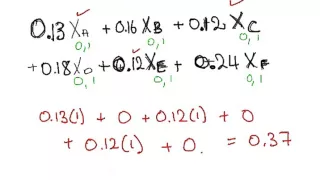 0.13 X_A + 0.16 X_B + 0.12 X_C
0,1 0,1 0,1
+ 0.18 X_D + 0.12 X_E + 0.24 X_F
0,1 0,1 0,1
0.13(1) + 0 + 0.12(1) + 0
+ 0.12(1) + 0. = 0.37